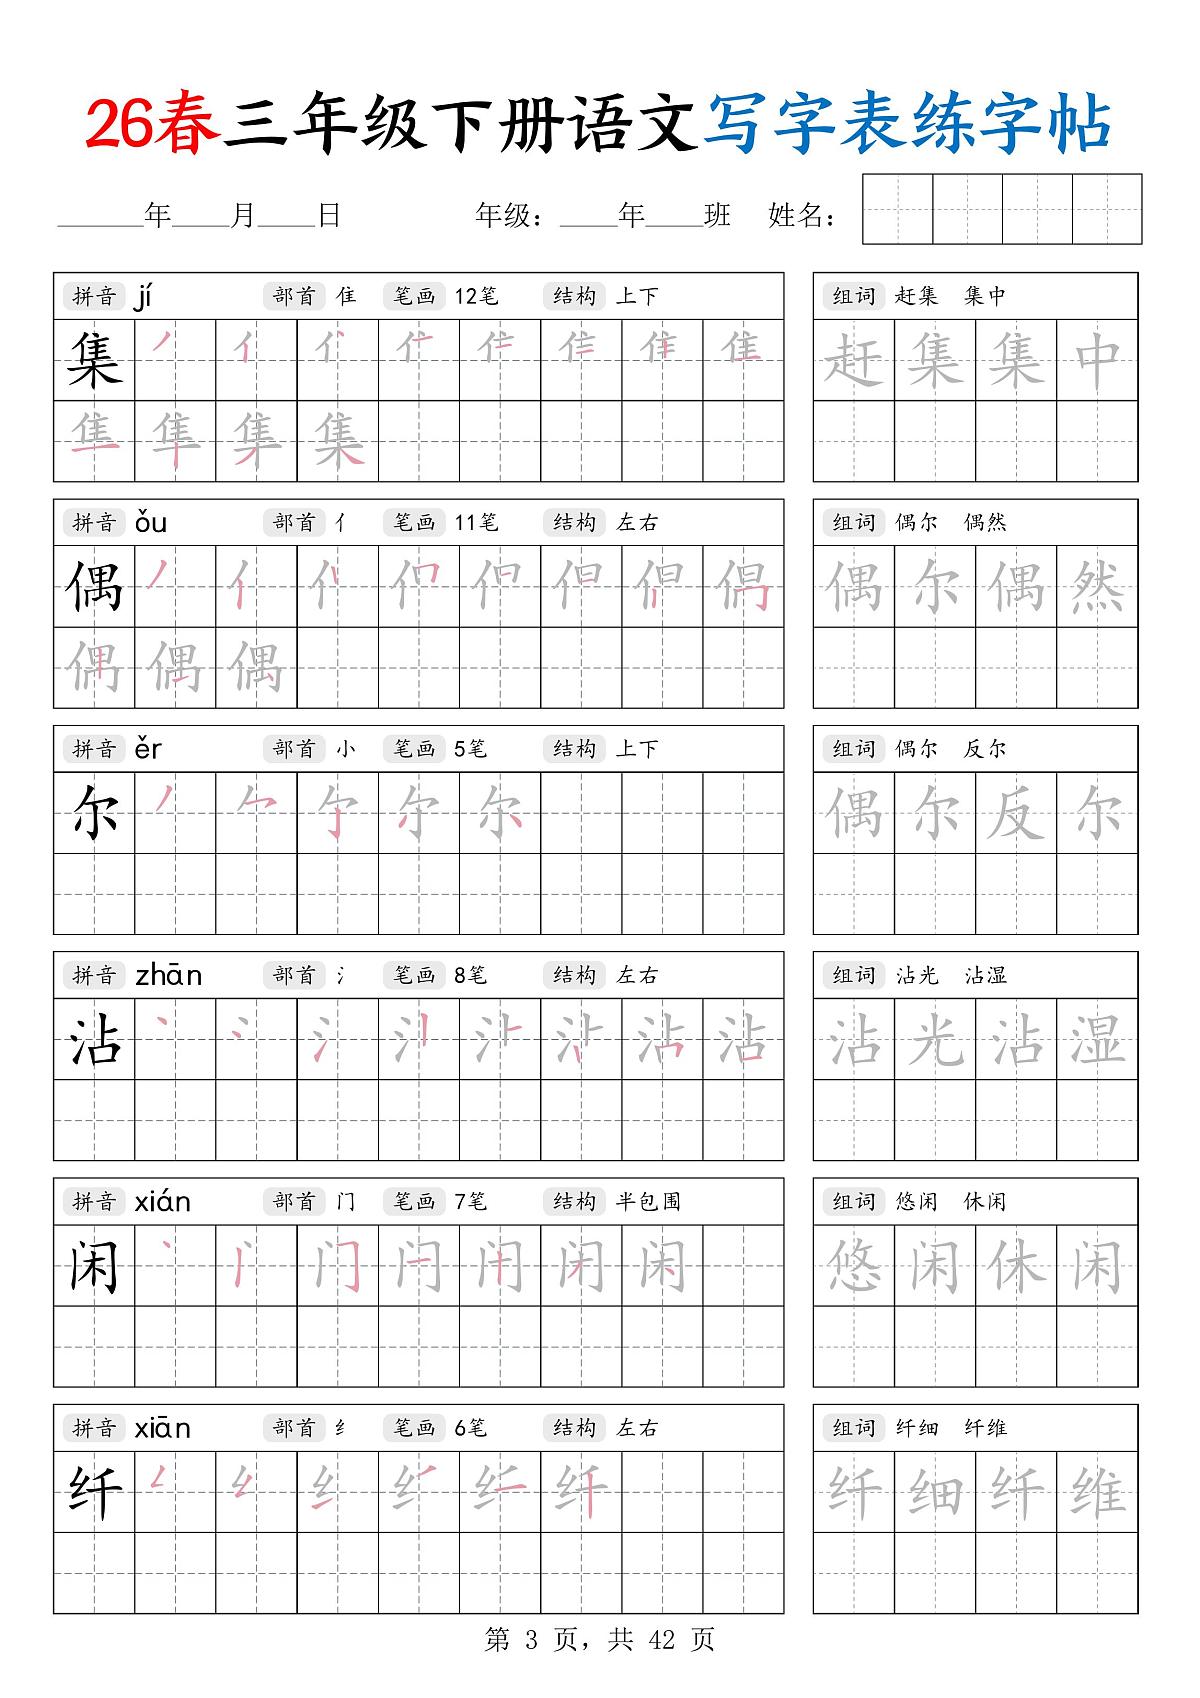 26春三年级下册语文写字表练字帖
______年____月____日 年级：____年____班 姓名：
拼音 jí 部首 隹 笔画 12笔 结构 上下 组词 赶集 集中
集 赶集集中
集
拼音 ǒu 部首 亻 笔画 11笔 结构 左右 组词 偶尔 偶然
偶 偶尔偶然
偶偶偶
拼音 ěr 部首 小 笔画 5笔 结构 上下 组词 偶尔 反尔
尔 尔 偶尔反尔
拼音 zhān 部首 氵 笔画 8笔 结构 左右 组词 沾光 沾湿
沾 沾 沾光沾湿
拼音 xián 部首 门 笔画 7笔 结构 半包围 组词 悠闲 休闲
闲 闲 悠闲休闲
拼音 xiān 部首 纟 笔画 6笔 结构 左右 组词 纤细 纤维
纤 纤 纤细纤维
第 3 页，共 42 页